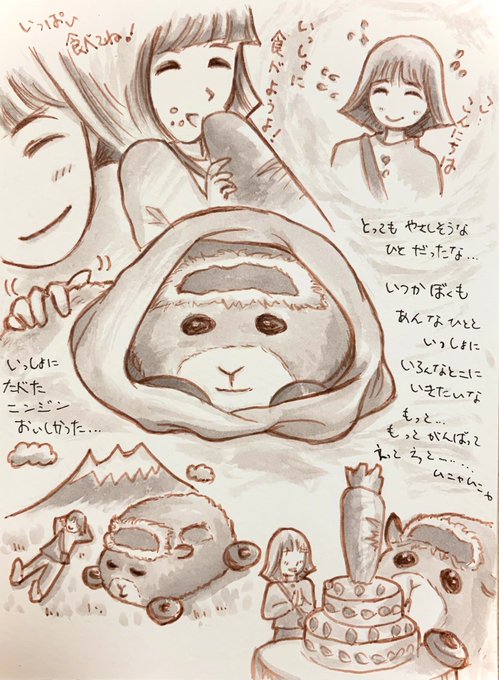 いっぱい
食べてね!
いっしょに
食べようよ!
こ、
こんにちは
とっても やさしそうな
ひと だったな…
いつか ぼくも
あんな ひとと
いっしょに
いろんなとこに
いきたいな
もっと…
もっと がんばって
えっと えっと……
ムニャムニャ
いっしょに
たべた
ニンジン
おいしかった…